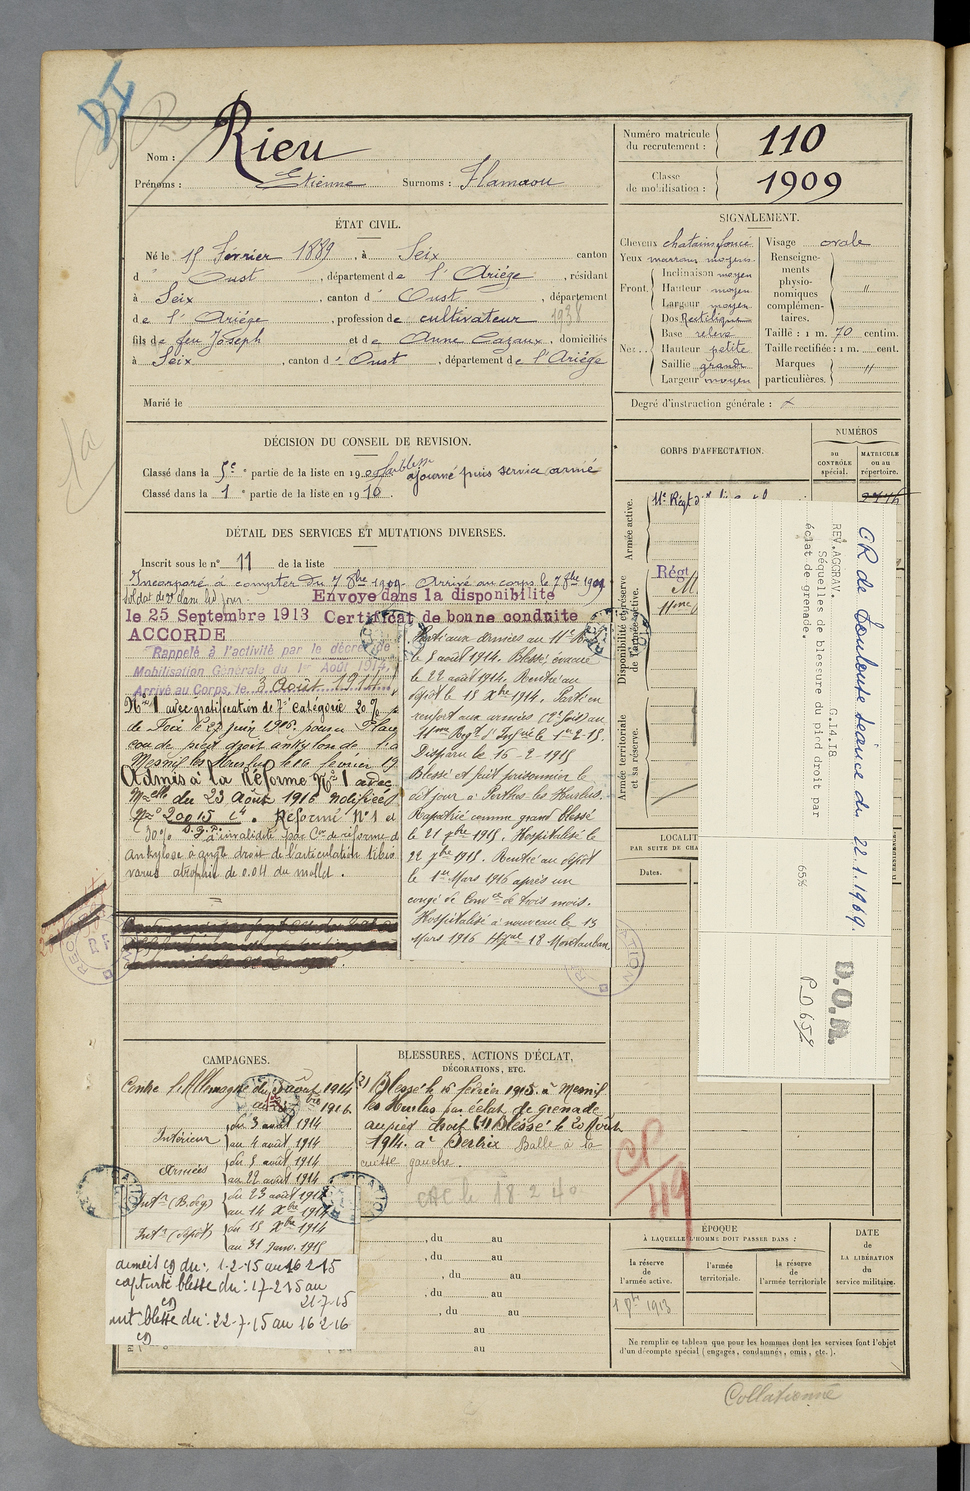 DI
R
Nom : Rieu
Prénoms : Etienne Surnoms : Hamaou
Numéro matricule du recrutement : 110
Classe de mobilisation : 1909
ÉTAT CIVIL.
Né le 15 Février 1889, à Seix canton
d' Oust, département de l'Ariège, résidant
à Seix, canton d' Oust, département
de l'Ariège, profession de cultivateur 1938
fils de feu Joseph et de Anne Cazaux, domiciliés
à Seix, canton d' Oust, département de l'Ariège
Marié le
SIGNALEMENT.
Cheveux chatains foncé
Yeux marrons moyens
Front. Inclinaison moyen
Hauteur moyen
Largeur moyen
Nez. Dos Rectiligne
Base relevé
Hauteur petite
Saillie grande
Largeur moyen
Visage ovale
Renseignements physionomiques complémentaires. "
Taille : 1 m. 70 centim.
Taille rectifiée : 1 m. cent.
Marques particulières. "
Degré d'instruction générale : x
DÉCISION DU CONSEIL DE REVISION.
Classé dans la 5e partie de la liste en 1909 faiblesse ajourné puis service armé
Classé dans la 1e partie de la liste en 1910.
DÉTAIL DES SERVICES ET MUTATIONS DIVERSES.
Inscrit sous le n° 11 de la liste
Incorporé à compter du 7 8bre 1909. Arrivé au corps le 7 8bre 1909
soldat de 2e classe le dit jour.
Envoyé dans la disponibilité
le 25 Septembre 1913 Certificat de bonne conduite
ACCORDÉ
Rappelé à l'activité par le décret de
Mobilisation Générale du 1er Août 1914.
Arrivé au Corps, le 3 Août 1914
N° 1 avec gratification de 7e catégorie 20%
de Foix le 27 juin 1916. pour
du pied droit ankylosé
Mesnil les Hurlus le 16 février 19
Admis à la Réforme N° 1 avec
du 23 Août 1916 notifiée
N° 20015 Réformé N° 1 et
30% d'invalidité par Con de réforme d
ankylose à angle droit de l'articulation tibio
varus atrophie de 0.04 du mollet.
Parti aux armées au 11e
le 5 août 1914. Blessé évacué
le 22 août 1914. Rentré au
dépôt le 15 Xbre 1914. Parti en
renfort aux armées (2e fois) au
11eme Regt d'Infrie le 1er-2-15.
Disparu le 16-2-1915
Blessé et fait prisonnier le
dit jour à Perthes-les-Hurlus.
Rapatrié comme grand blessé
le 21 7bre 1915. Hospitalisé le
22 7bre 1915. Rentré au dépôt
le 1er Mars 1916 après un
congé de Convce de trois mois.
Hospitalisé à nouveau le 13
Mars 1916 Hpal 18 Montauban
CORPS D'AFFECTATION.
NUMÉROS
au CONTRÔLE spécial.
MATRICULE ou au répertoire.
Armée active.
Disponibilité et réserve de l'armée active.
Armée territoriale et sa réserve.
11e Régt
Régt
11eme
LOCALIT
PAR SUITE DE CHA
Dates.
CR de Toulouse séance du 22.1.1969.
REV.AGGRAV. G.14.18
Séquelles de blessure du pied droit par
éclat de grenade.
65%
D.O.M.
P.D 65%
CAMPAGNES.
Contre l'Allemagne du 3 août 1914
au
1916
Intérieur du 3 août 1914
au 4 août 1914
Armées du 5 août 1914
au 22 août 1914
Intr (B. deg) du 23 août 1914
au 14 Xbre 1914
Intr (dépôt) du 15 Xbre 1914
au 31 Janv. 1915
armée cg du : 1-2-15 au 16 2-15
capturé blessé du : 17-2-15 au
21-7-15
int blessé du : 22-7-15 au 16 2-16
BLESSURES, ACTIONS D'ÉCLAT,
DÉCORATIONS, ETC.
(2) Blessé le 16 février 1915. à Mesnil
les Hurlus par éclat de grenade
au pied droit (1) Blessé le 20 Août
1914. à Bertrix Balle à la
cuisse gauche.
CAC le 18 2 40
CP
49
, du au
, du au
, du au
, du au
, du au
au
au
ÉPOQUE
À LAQUELLE L'HOMME DOIT PASSER DANS :
la réserve de l'armée active.
l'armée territoriale.
la réserve de l'armée territoriale
DATE de LA LIBÉRATION du service militaire.
1 8bre 1913
Ne remplir ce tableau que pour les hommes dont les services font l'objet
d'un décompte spécial (engagés, condamnés, omis, etc.).
Collationné